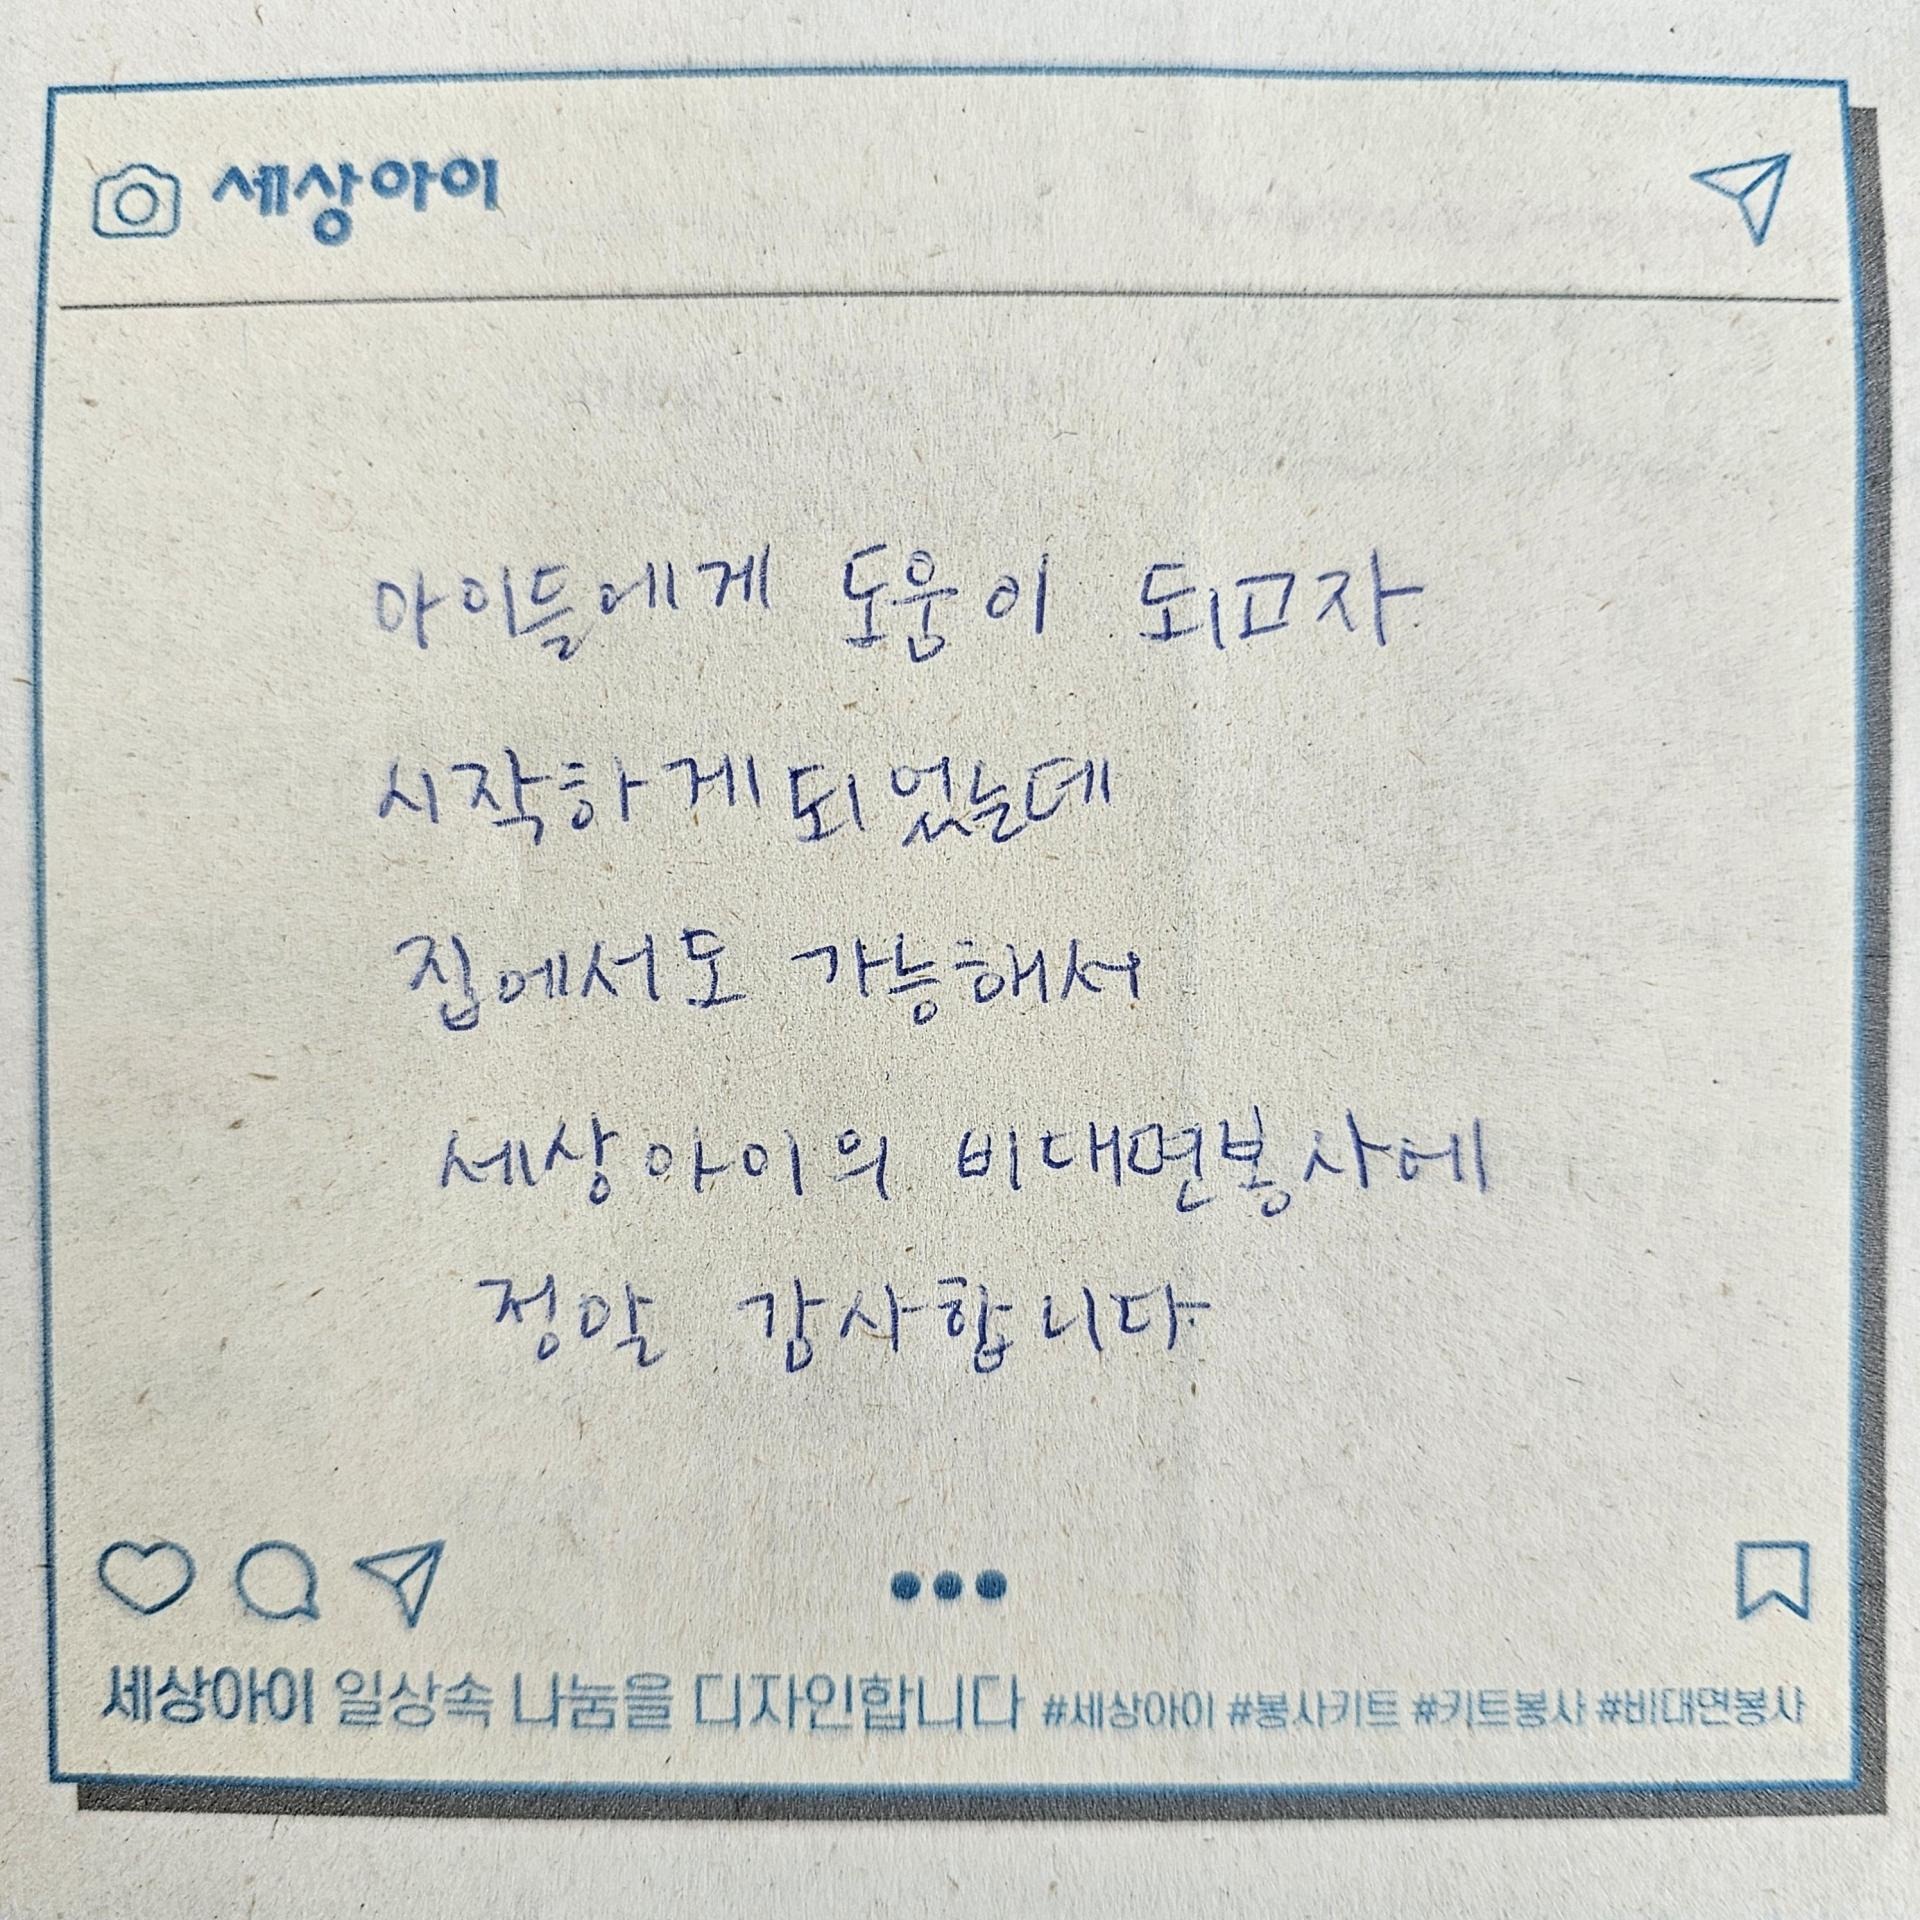 세상아이
아이들에게 도움이 되고자
시작하게되었는데
집에서도 가능해서
세상아이의 비대면봉사에
정말 감사합니다.
세상아이 일상속 나눔을 디자인합니다 #세상아이 #봉사키트 #키트봉사 #비대면봉사